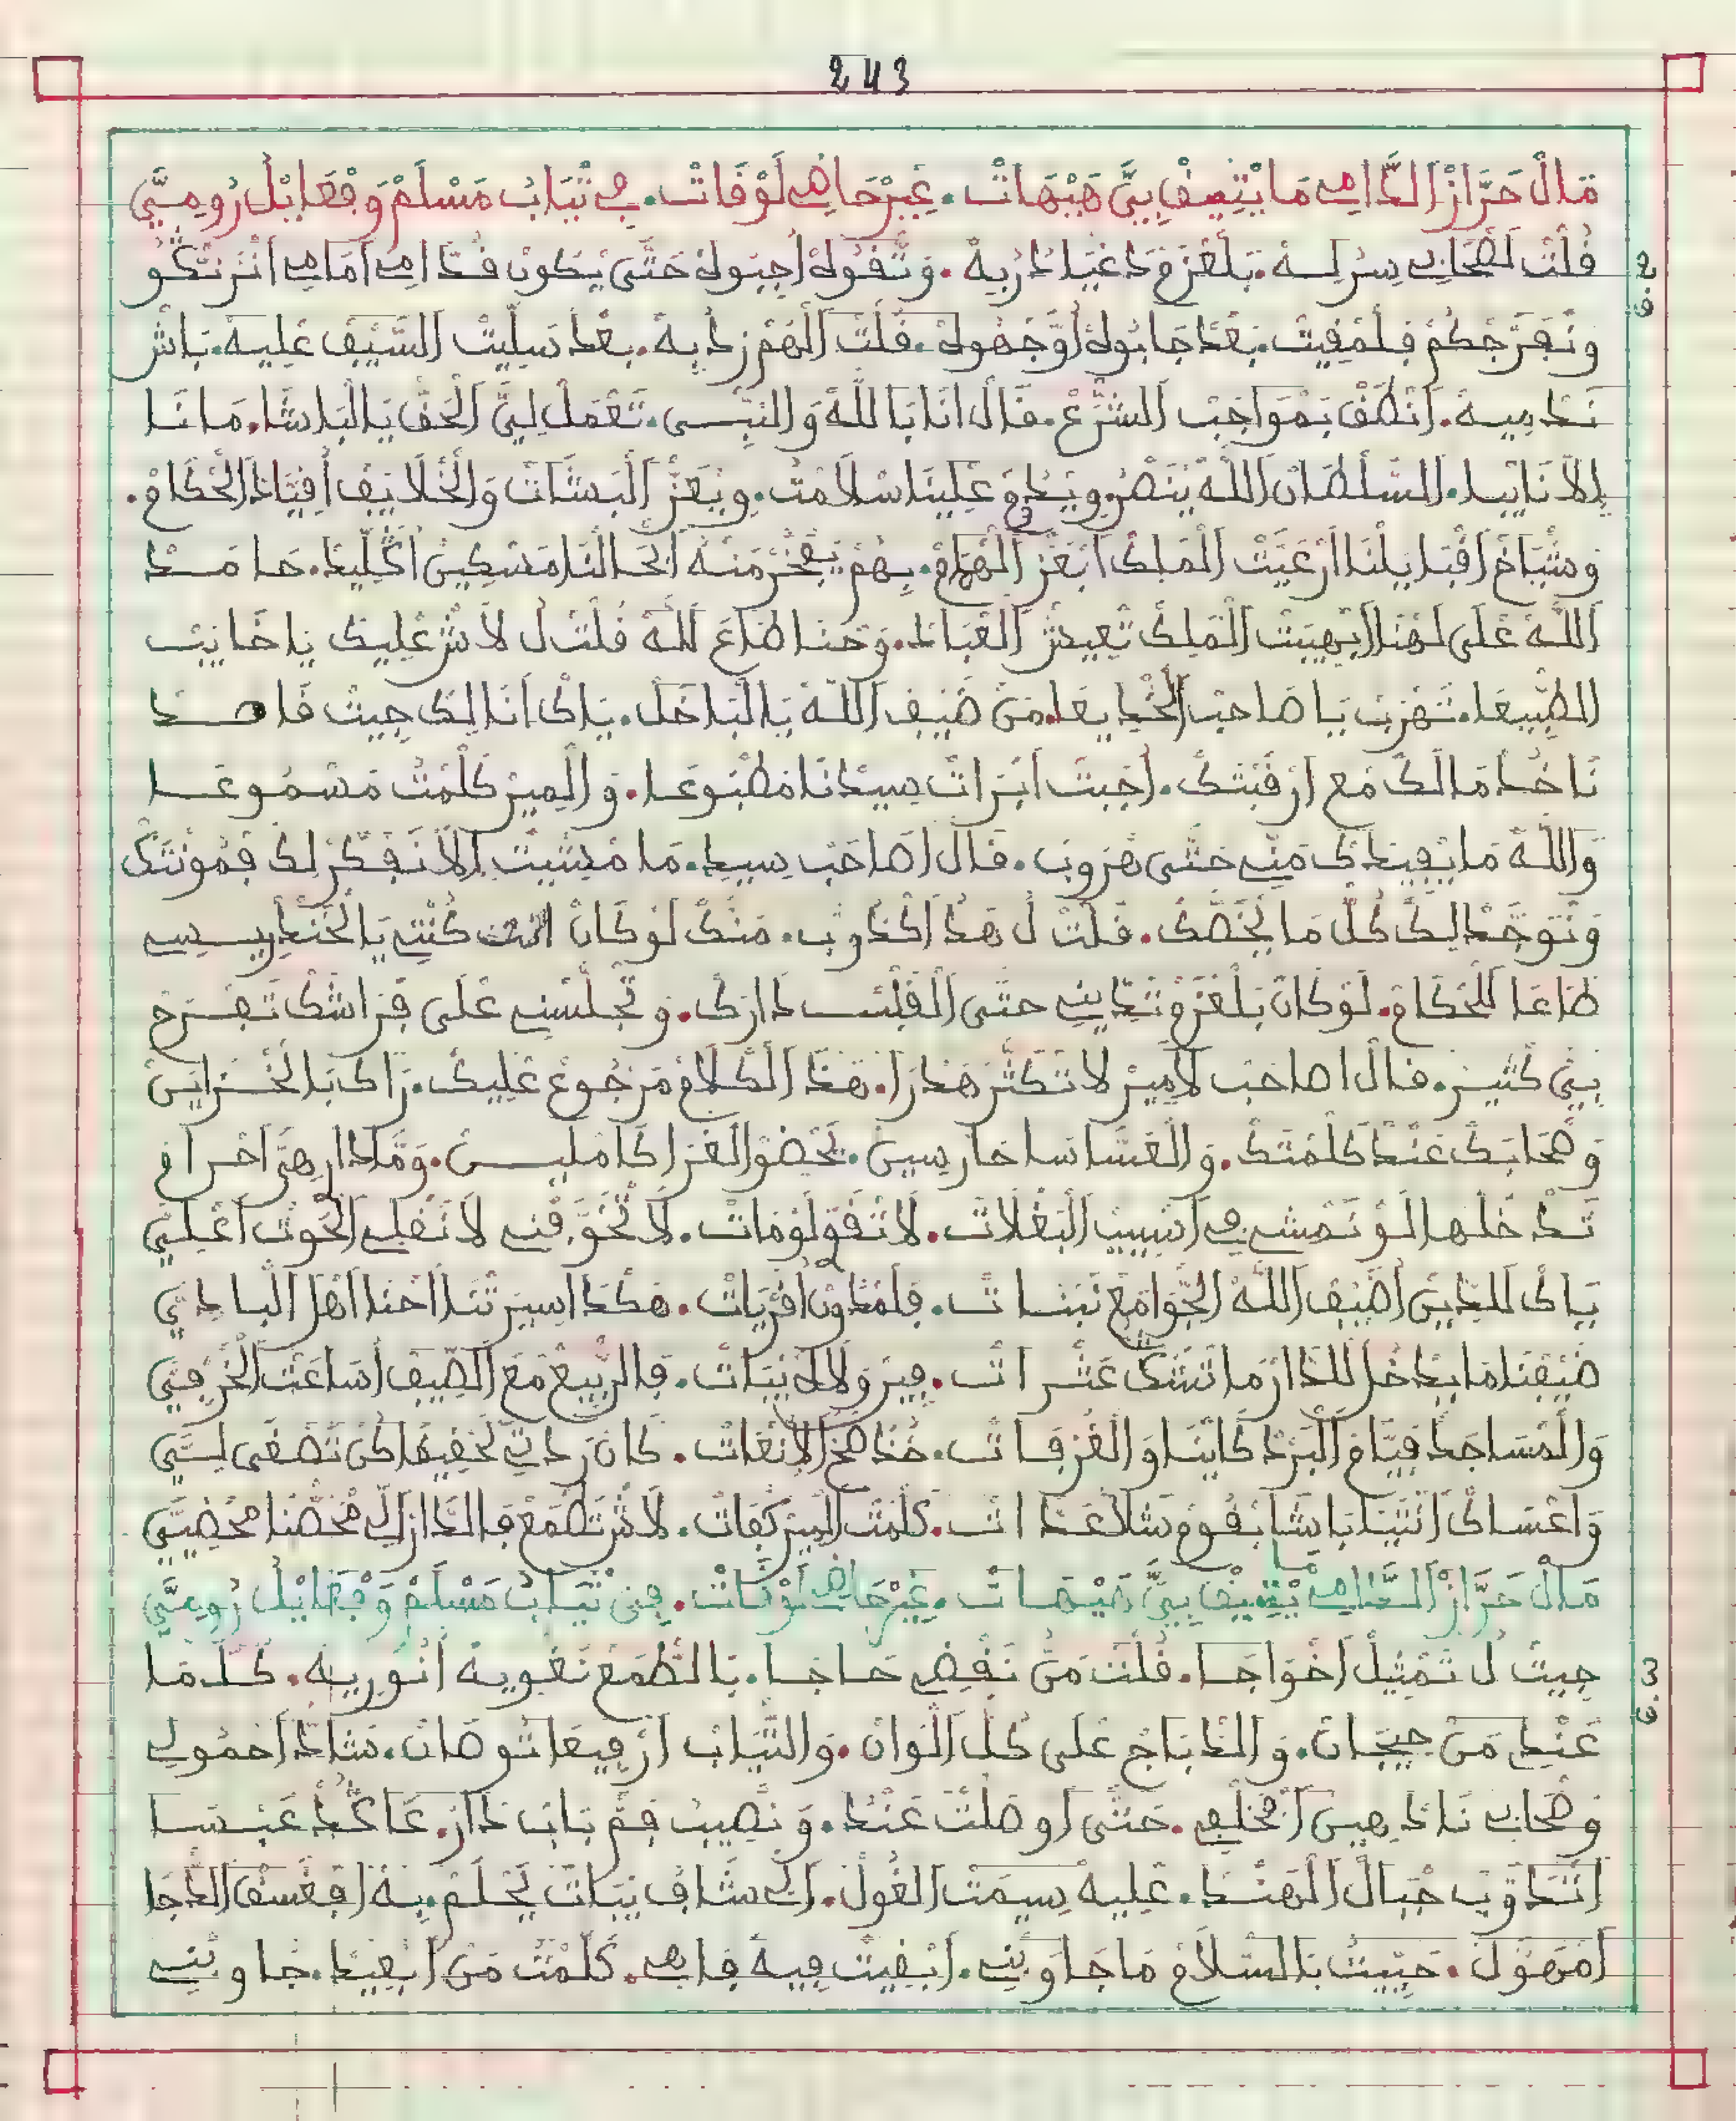 243
مَالْ حَرَّازْ الدَّامِي مَا يْتِيقْ بِيَّ هَيْهَاتْ. غِيرْ جَافِي لَوْقَاتْ. فِي ثْيَابْ مَسْلَمْ وَفْعَايْلْ رُومِيَّ
قُلْتْ لَصْحَابِي سِرْ لِـهْ. بَلْعَزْمْ دَغْيَا دُرْ بِهْ. وَتْقُولْ اجِبُولْ حَتَّى يْكُونْ قُدَّامِي أَمَامِي
وَنْفَرَّجْكُمْ فِلْمْقِيتْ. بَعْدْ جَابُولْ أُوَّجْهُولْ. قُلْتْ اللَّهُمْ زِدْ بِهْ. بعْدْ سَلِّيتْ السَّيْفْ عْلِيهْ. بَاشْ
نَدْمِيـهْ. انْطَقْ بَمْوَاجَبْ الشَّرْعْ. قَالْ انَا بَاللَّهْ وَالنّبِـي. تَعْمَلْ لِيَّ الْحَقْ يَا الْبَاشَا. مَا نَا
إِلاَّ نَايْبـا. السَّلْطَانْ اللَّهْ يَنْصْرُ وِيْدُومْ عْلِينَا سْلاَمْتُ. وِيْعَزْ الْبَشَاتْ وَالْخْلاَيْفْ الْحُكَّامْ.
وَشْيَاخْ اقْبَايَلْنَا ارْعِيَّتْ الْمَلِكْ ابْعَزْ الْهْمَامْ. بِهُمْ يَفْخَرْ مَنْـهْ الْحَالْنَا مَسْكِينْ. حَامَـدْ
اللَّـهْ عْلَى لَهْنَا ابْهِيبَتْ الْمَلِكْ تْعِيشْ الْعْبَادْ. وَحْنَا طَاعَ للهْ قُلْتْ لُ لاَشْ عْلِيكْ يَا خَايَبْ
الطّبِيعَا. تَهْرَبْ يَا صَاحَبْ الْخْدِيعَا. مَنْ ضِيفْ اللَّـهْ يَا الْبَاخَلْ. يَاكْ انَا لِكْ جِيتْ قَاصَـدْ
نَاخُدْ مَالَكْ مَعْ ارْقَبْتَكْ. اجِبْتْ ابْرَاتْ سِيدْنَا مَطْبُوعَـا. وَالْمِيرْ كَلْمْتُ مَسْمُوعَـا
وَاللَّـهْ مَا يْفِيدَكْ مَنِّي حَتَّى هْرُوبْ. قَالْ اصَاحَبْ سِيدِي. مَا مْشِيتْ إِلاَّ نْفَكَّرْ لَكْ فَمُونْتَكْ
وَنْوَجَّدْ لِيكْ كُلّْ مَا يْخَصَّكْ. قُلْتْ لُ هَدَا اكْدُوبْ. مَنَّكْ لَوْ كَانْ انْتَ كُنْتِ يَا الْخَنْدْرِيـسِي
طَاعَا للْحُكَّامْ. لَوْ كَانْ بَلْعَزْمْ تَدِّينِي حتَّى الْقَلْبْ دَارَكْ. وَتْجَلَّسْنِي عْلَى فْرَاشَكْ تَفْـرَحْ
بِيَّ كْثِيـرْ. قَالْ اصَاحَبْ لاَمِيرْ لاَ تْكَثَّرْ هَدْرَا. هَدَا الْكْلاَمْ مَرْجُوعْ عْلِيكْ. رَاكْ بَالْخْـزَايَنْ
وَصْحَابَكْ عَنْدْ كَلْمْتَكْ. وَالْعَسَّاسَا حَارْسِينْ. يَحْضَوْ الْغَزَا كَامْلِيـنْ. وَمَّا دَارْ هِيَّ احْرَامْ
تَدْخَلْهَا لَوْ نَمْشِي فِي اسْبِيبْ الْبَغْلاَتْ. لاَ تْفَوَّلْ وْمَاتْ. لاَ تْخَوَّفْنِي لاَ تَقْلِي الْحُوتْ اعْلِيَّ
يَاكْ للدِّينْ اضْيْفْ اللَّهْ الْجْوَامَعْ تَبْنَـاتْ. فِلْمْدُونْ اقْرِيَّاتْ. هَكْدَا سِيرْتْنَا احْنَا أَهْلْ الْبَادِيَّ
ضَيْفْنَا مَا يَدْخُلْ للدَّارْ مَا تَشَّكْ عَثْـرَاتْ. مِيرْ وْلاَّ لُهْ نِيَّاتْ. فَالرّْبِيعْ مْعَ الصِّيفْ أُسَاعَتْ الْخْرِفِيَّ
وَالْمْسَاجَدْ فِيَّامْ الْبَرْدْ كَايْنَا وَالْغُرْفَـاتْ. كَانْ رَدْتِي تَخْفِيهَا كُنْ تَصْغَى لِـيَّ
وَاعْسَاكْ انْتَيَا بَاشَا بْقُومْ شَلاَّ عْدَاتْ. كَلْمْتْ الْمِيرْ كْفَاتْ. لاَشْ تَطْمَعْ فَالدَّارْ الِّي مْحَصّْنَا مَحْضِيَّ
مَالْ حَرَّازْ الدَّامِي مَا يْتِيقْ بِيَّ هَيْهَـاتْ. غِيرْ جَافِي لَوْقَاتْ. فِي ثْيَـابْ مَسْلَمْ وَفْعَايْلْ رُومِيَّ
جِيتْ لُ تَمْثِيلْ اخْوَاجَـا. قُلْتْ مَنُّ نَقْضِي حَـاجَـا. بَالطّْمَعْ نَغْوِيهْ انْوُرِيهْ. كُـلْ مَا
عَنْدِي مَنْ تِيجَـانْ. وَالدْبَاجْ عْلَى كُلْ الْوَانْ. وَالثّْيَابْ ارْفِيعَا تُوصَانْ. شَادْ احْمُولِي
وَصْحَابِي نَادْهِينْ امْخَلْفِي. حَتَّى اوْصَلْتْ عَنْدُ. وَنْصِيبْ فُمّْ بَابْ دَارُ. عَاكُّدْ عَبْـسَـا
اتْدَوَّبْ جْبَالْ الْهَنْـدْ. عْلِيهْ سِيمَتْ الْغُولْ. الِّي شَافُ يْبَاتْ يَحْلَمْ. بِهْ افْغَسْقْ الدّْجَا
امْهَوَّلْ. حَيِّيتُ بَالسّْلاَمْ مَاجَاوَبْنِي. ابْقِيتْ فِيهْ فَاهِي. كَلَّمْتُ مَنْ ابْعِيدْ. جَاوَبْنِي
2
ق
3
ق